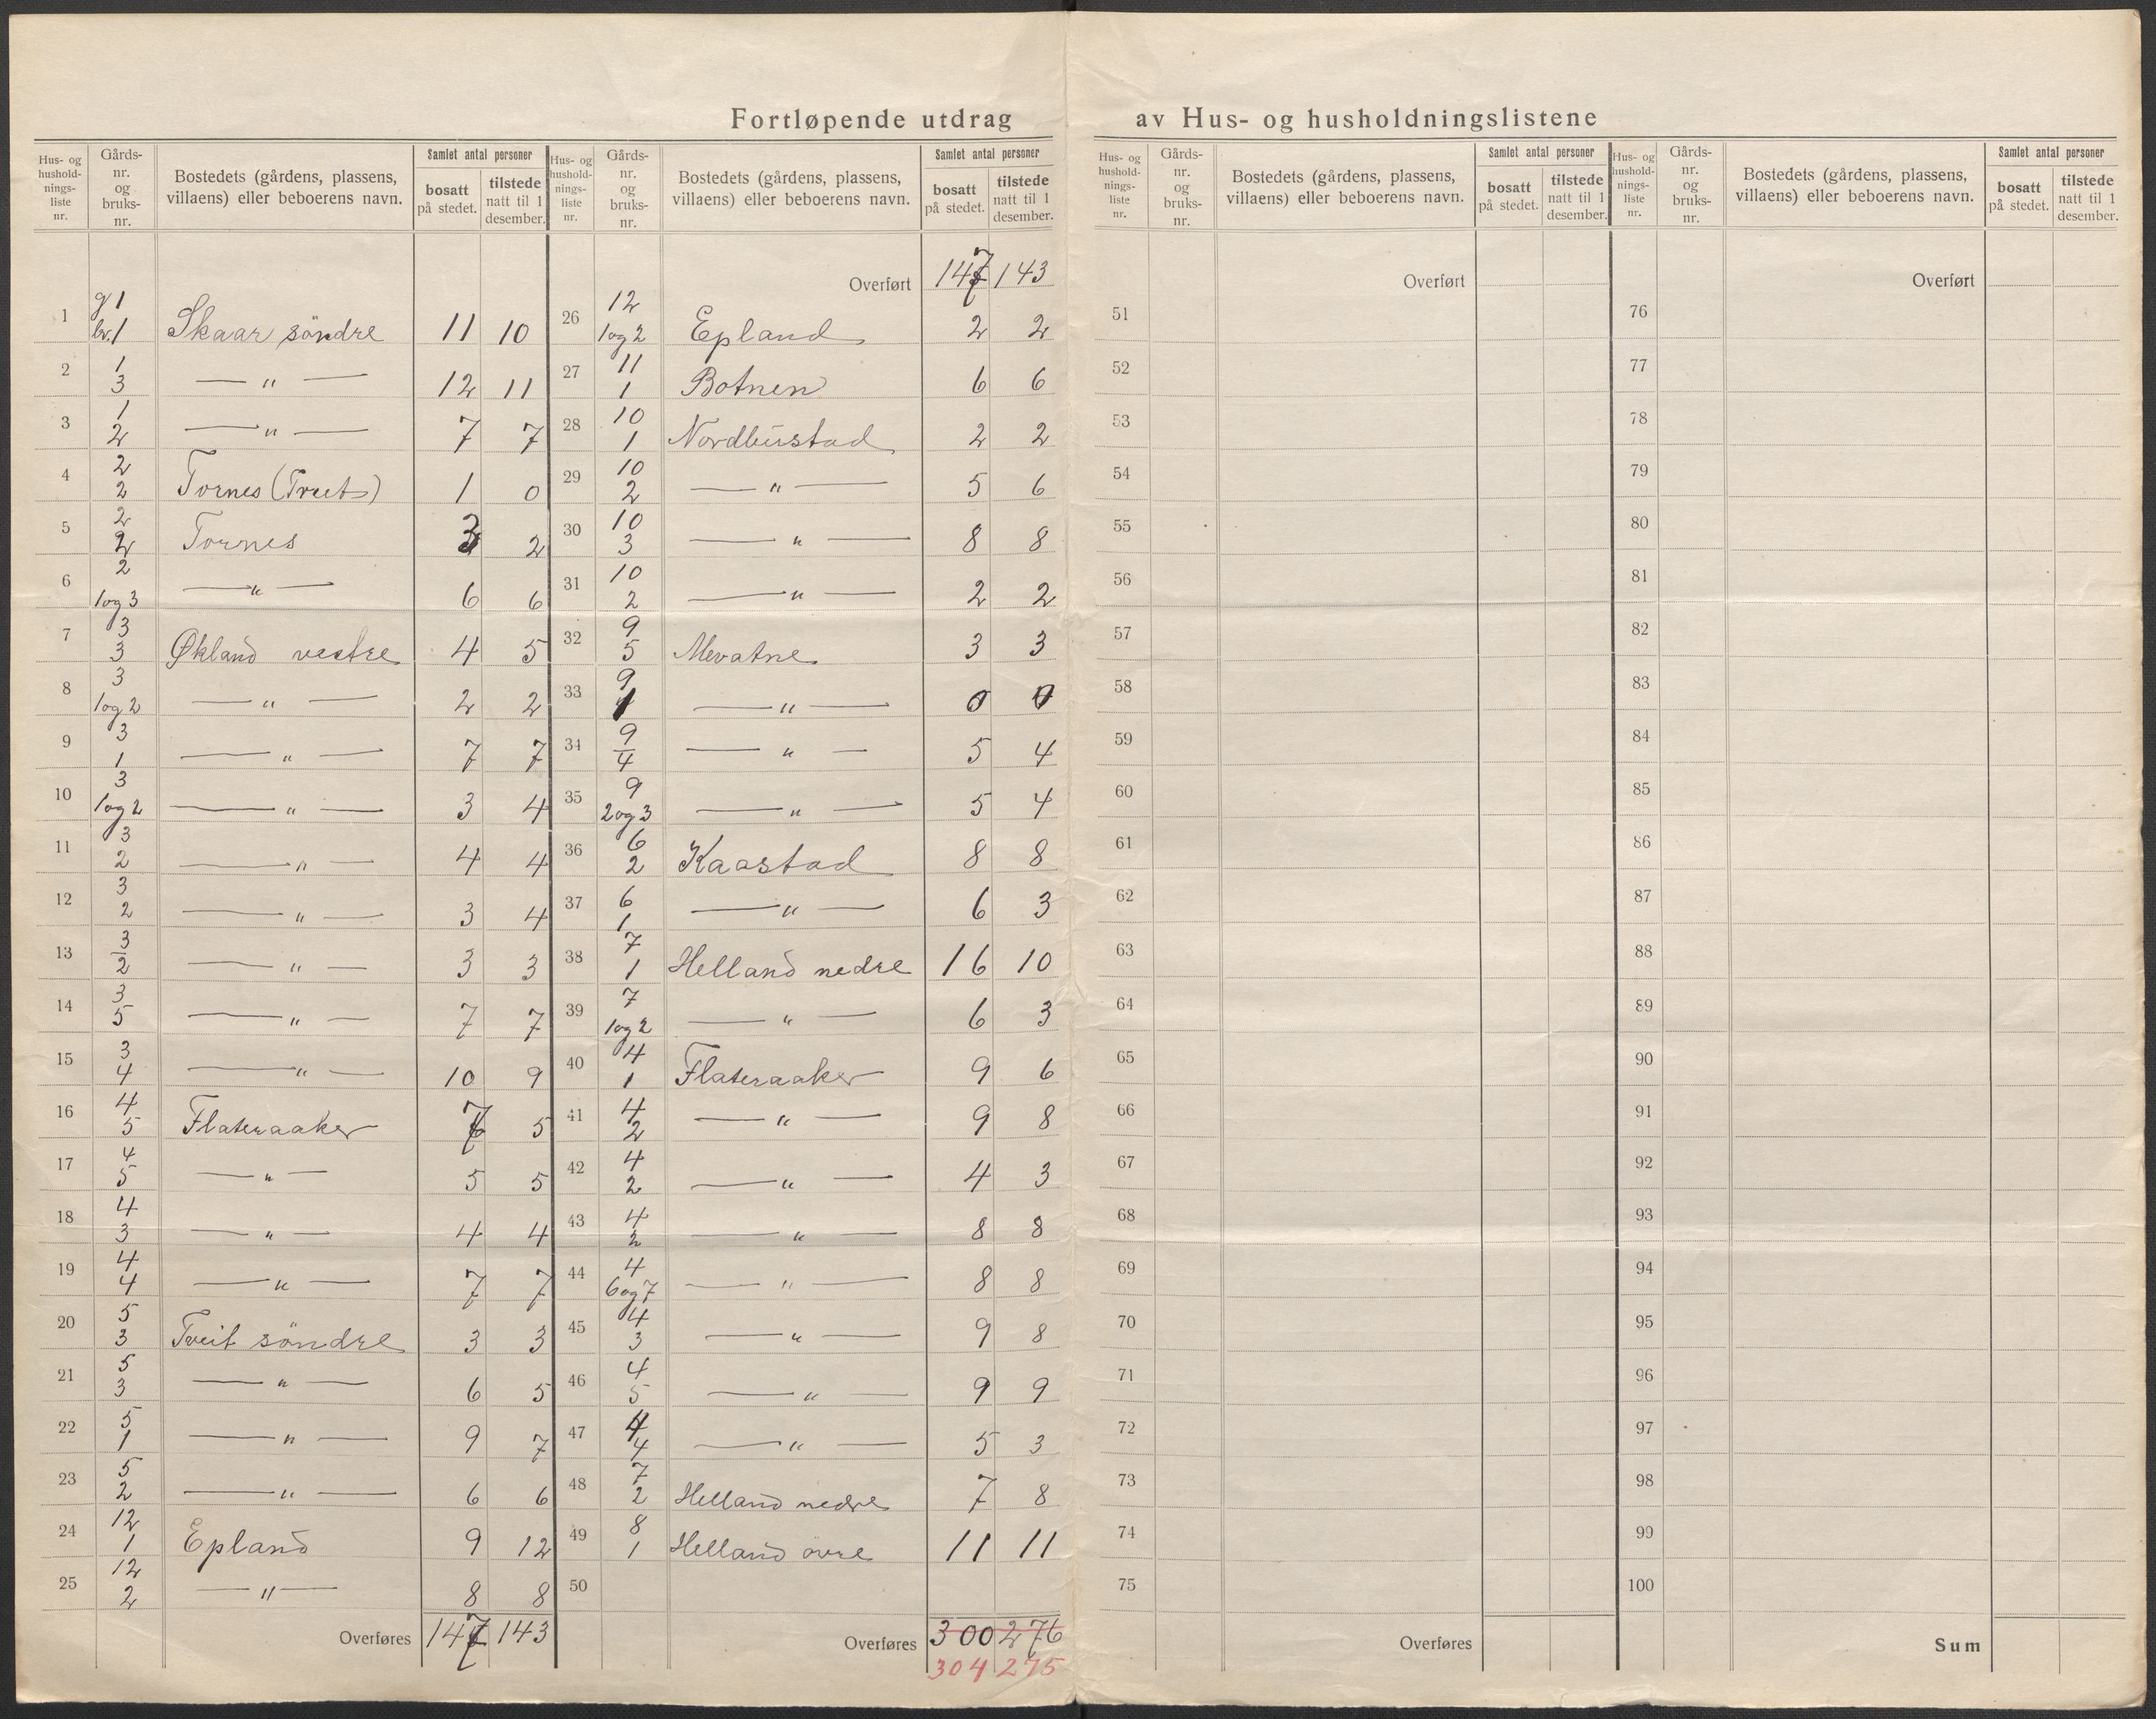 Fortløpende utdrag av Hus- og husholdningslistene
Hus- og hushold-nings-liste nr. | Gårds-nr. og bruks-nr. | Bostedets (gårdens, plassens, villaens) eller beboerens navn. | Samlet antal personer | bosatt på stedet. | tilstede natt til 1 desember.
1 | g 1 br. 1 | Skaar söndre | 11 | 10
2 | 1 3 | — " — | 12 | 11
3 | 1 2 | — " — | 7 | 7
4 | 2 2 | Tornes (Treet) | 1 | 0
5 | 2 2 | Tornes | 3 | 2
6 | 2 1 og 3 | — " — | 6 | 6
7 | 3 3 | Økland vestre | 4 | 5
8 | 3 1 og 2 | — " — | 2 | 2
9 | 3 1 | — " — | 7 | 7
10 | 3 1 og 2 | — " — | 3 | 4
11 | 3 2 | — " — | 4 | 4
12 | 3 2 | — " — | 3 | 4
13 | 3 2 | — " — | 3 | 3
14 | 3 5 | — " — | 7 | 7
15 | 3 4 | — " — | 10 | 9
16 | 4 5 | Flateraaker | 7 | 5
17 | 4 5 | — " — | 5 | 5
18 | 4 3 | — " — | 4 | 4
19 | 4 4 | — " — | 7 | 7
20 | 5 3 | Tveit söndre | 3 | 3
21 | 5 3 | — " — | 6 | 5
22 | 5 1 | — " — | 9 | 7
23 | 5 2 | — " — | 6 | 6
24 | 12 1 | Epland | 9 | 12
25 | 12 2 | — " — | 8 | 8
Overføres | 147 | 143
Hus- og hushold-nings-liste nr. | Gårds-nr. og bruks-nr. | Bostedets (gårdens, plassens, villaens) eller beboerens navn. | Samlet antal personer | bosatt på stedet. | tilstede natt til 1 desember.
Overført | 147 | 143
26 | 12 1 og 2 | Epland | 2 | 2
27 | 11 1 | Botnen | 6 | 6
28 | 10 1 | Nordbustad | 2 | 2
29 | 10 2 | — " — | 5 | 6
30 | 10 3 | — " — | 8 | 8
31 | 10 2 | — " — | 2 | 2
32 | 9 5 | Mevatne | 3 | 3
33 | 9 1 | — " — | 0 | 0
34 | 9 4 | — " — | 5 | 4
35 | 9 2 og 3 | — " — | 5 | 4
36 | 6 2 | Kaastad | 8 | 8
37 | 6 1 | — " — | 6 | 3
38 | 7 1 | Helland nedre | 16 | 10
39 | 7 1 og 2 | — " — | 6 | 3
40 | 4 1 | Flateraaker | 9 | 6
41 | 4 2 | — " — | 9 | 8
42 | 4 2 | — " — | 4 | 3
43 | 4 2 | — " — | 8 | 8
44 | 4 6 og 7 | — " — | 8 | 8
45 | 4 3 | — " — | 9 | 8
46 | 4 5 | — " — | 9 | 9
47 | 4 4 | — " — | 5 | 3
48 | 7 2 | Helland nedre | 7 | 8
49 | 8 1 | Helland övre | 11 | 11
50
Overføres | 300 | 276
304 | 275
Hus- og hushold-nings-liste nr. | Gårds-nr. og bruks-nr. | Bostedets (gårdens, plassens, villaens) eller beboerens navn. | Samlet antal personer | bosatt på stedet. | tilstede natt til 1 desember.
Overført
51
52
53
54
55
56
57
58
59
60
61
62
63
64
65
66
67
68
69
70
71
72
73
74
75
Overføres
Hus- og hushold-nings-liste nr. | Gårds-nr. og bruks-nr. | Bostedets (gårdens, plassens, villaens) eller beboerens navn. | Samlet antal personer | bosatt på stedet. | tilstede natt til 1 desember.
Overført
76
77
78
79
80
81
82
83
84
85
86
87
88
89
90
91
92
93
94
95
96
97
98
99
100
Sum